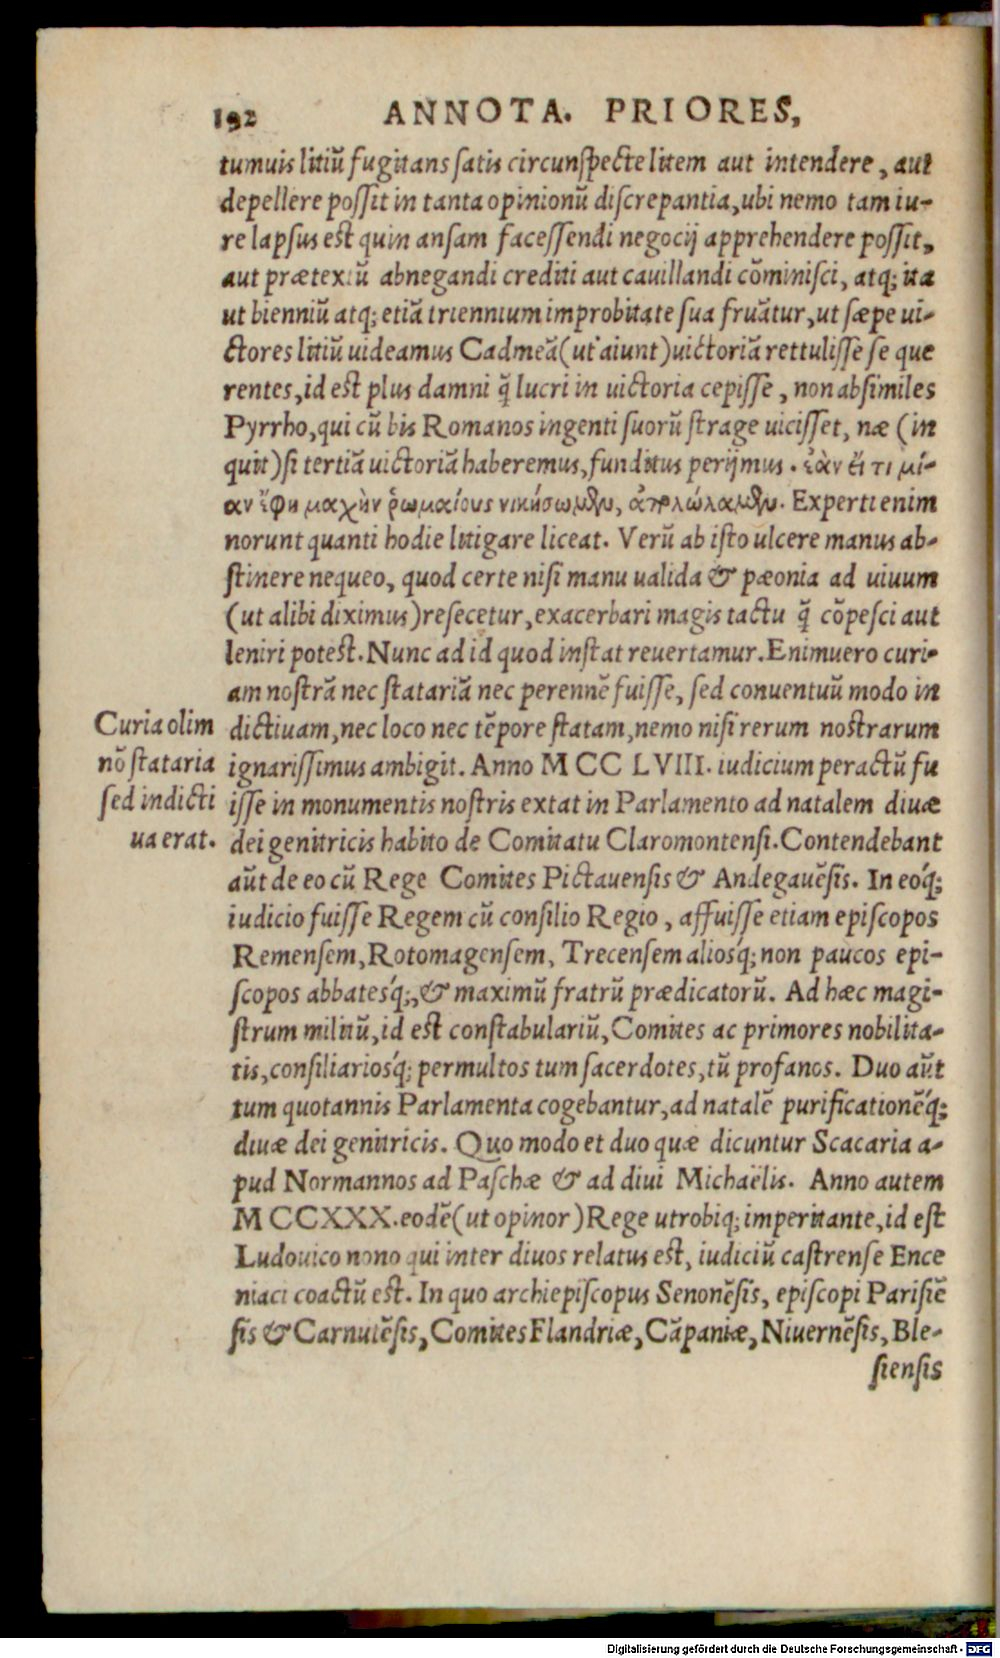 192 ANNOTA. PRIORES,
tumuis litiū fugitans satis circunspecte litem aut intendere, aut
depellere possit in tanta opinionū discrepantia, ubi nemo tam iu-
re lapsus est quin ansam facessendi negocij apprehendere possit,
aut prætextū abnegandi crediti aut cauillandi cōminisci, atq; ita
ut bienniū atq; etiā triennium improbitate sua fruātur, ut sæpe ui-
ctores litiū uideamus Cadmeā (ut aiunt) uictoriā rettulisse se que
rentes, id est plus damni q̄ lucri in uictoria cepisse, non absimiles
Pyrrho, qui cū bis Romanos ingenti suorū strage uicisset, næ (in
quit) si tertiā uictoriā haberemus, funditus perijmus. ἐὰν ἔτι μί-
αν ἔφη μαχὴν ῥωμαίους νικήσωμεν, ἀπολώλαμεν. Experti enim
norunt quanti hodie litigare liceat. Verū ab isto ulcere manus ab-
stinere nequeo, quod certe nisi manu ualida & pæonia ad uiuum
(ut alibi diximus) resecetur, exacerbari magis tactu q̄ cōpesci aut
leniri potest. Nunc ad id quod instat reuertamur. Enimuero curi-
am nostrā nec statariā nec perennē fuisse, sed conuentuū modo in
dictiuam, nec loco nec tēpore statam, nemo nisi rerum nostrarum
ignarissimus ambigit. Anno M CC LVIII. iudicium peractū fu
isse in monumentis nostris extat in Parlamento ad natalem diuæ
dei genitricis habito de Comitatu Claromontensi. Contendebant
aūt de eo cū Rege Comites Pictauensis & Andegauēsis. In eoq́;
iudicio fuisse Regem cū consilio Regio, affuisse etiam episcopos
Remensem, Rotomagensem, Trecensem aliosq́; non paucos epi-
scopos abbatesq́;, & maximū fratrū prædicatorū. Ad hæc magi-
strum militū, id est constabulariū, Comites ac primores nobilita-
tis, consiliariosq́; permultos tum sacerdotes, tū profanos. Duo aūt
tum quotannis Parlamenta cogebantur, ad natalē purificationēq́;
diuæ dei genitricis. Quo modo et duo quæ dicuntur Scacaria a-
pud Normannos ad Paschæ & ad diui Michaëlis. Anno autem
M CCXXX. eodē (ut opinor) Rege utrobiq; imperitante, id est
Ludouico nono qui inter diuos relatus est, iudiciū castrense Ence
niaci coactū est. In quo archiepiscopus Senonēsis, episcopi Parisiē
sis & Carnutēsis, Comites Flandriæ, Cāpaniæ, Niuernēsis, Ble-
siensis
Curia olim
nō stataria
sed indicti
ua erat.
Digitalisierung gefördert durch die Deutsche Forschungsgemeinschaft - DFG